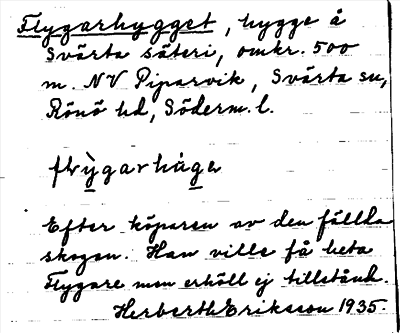 Flygarhygget, hygge å
Svärta säteri, omkr. 500
m. NV Piparvik, Svärta sn,
Rönö hd, Söderm. l.
flỳgarhùga
Efter köparen av den fällda
skogen. Han ville få heta
Flygare men erhöll ej tillstånd.
Herberth Eriksson 1935.